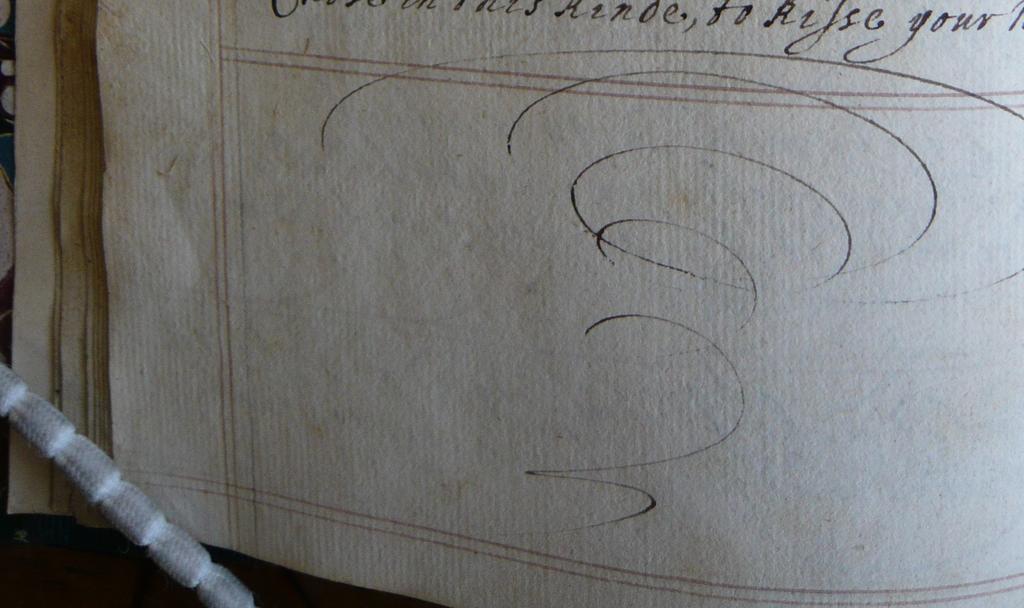 those in this kinde, to kisse your